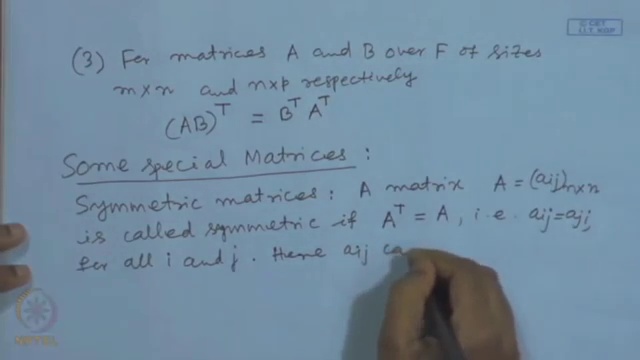 © CET
I.I.T. KGP
(3) For matrices A and B over F of sizes
m×n and n×p respectively
(AB)^T = B^T A^T
Some special Matrices :
Symmetric matrices : A matrix A = (aij)n×n
is called symmetric if A^T = A, i.e. aij = aji,
for all i and j. Here aij ca
NPTEL